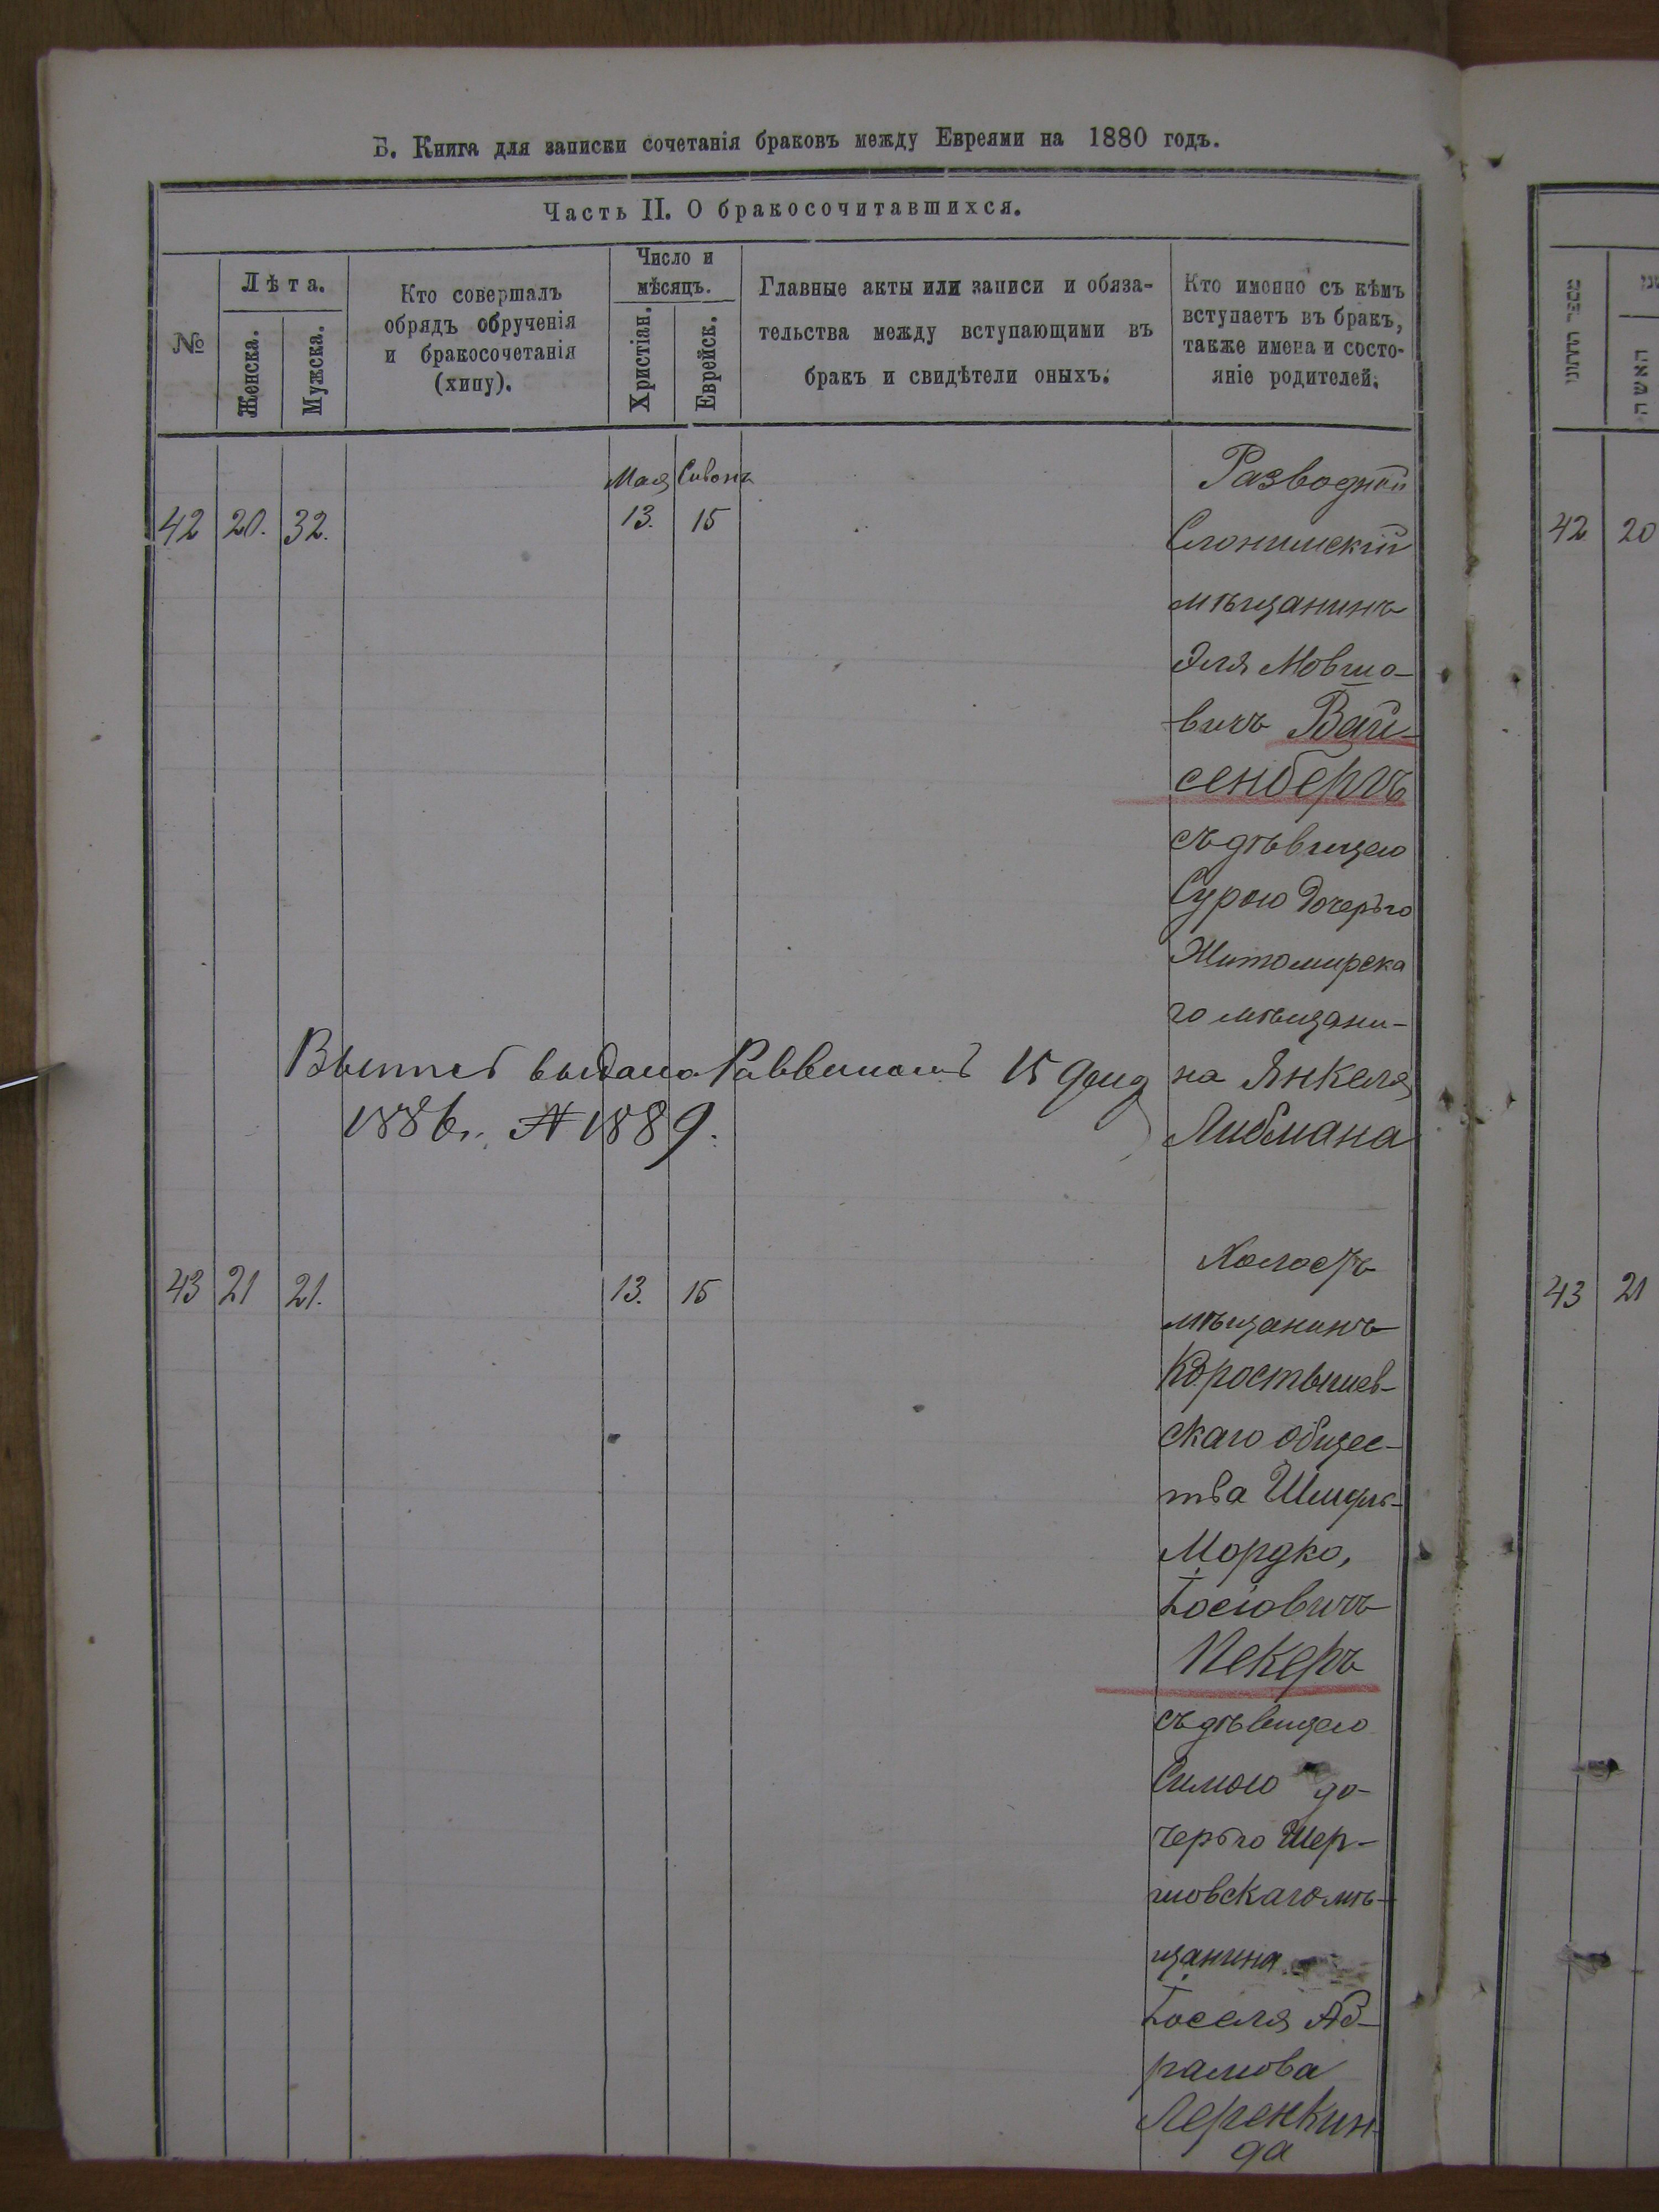 Б. Книга для записки сочетанія браковъ между Евреями на 1880 годъ.
Часть II. О бракосочитавшихся.
№
Лѣта.
Женска.
Мужска.
Кто совершалъ
обрядъ обрученія
и бракосочетанія
(хипу).
Число и
мѣсяцъ.
Христіан.
Еврейск.
Главные акты или записи и обяза-
тельства между вступающими въ
бракъ и свидѣтели оныхъ.
Кто именно съ кѣмъ
вступаетъ въ бракъ,
также имена и состо-
яніе родителей.
Мая Сивонъ
42 20. 32. 13. 15
Разводный
Слонимскій
мѣщанинъ
Эля Мовшо-
вичъ Вай-
сенбергъ
съ дѣвицею
Сурою дочерью
Житомирска
го мѣщани-
на Янкеля
Либмана
выдана Раввиномъ 15
1886г. № 1889.
43 21 21. 13. 15
Холостъ
мѣщанинъ
Коростышев-
скаго общес-
тва Шмуль-
Мордко,
Іосіовичъ
Пекеръ
съ дѣвицею
Симою до-
черью Шер-
шовскаго мѣ-
щанина
Іоселя Аб-
рамова
Леренкин-
да
מספר הדרוני
האשה
42 20
43 21